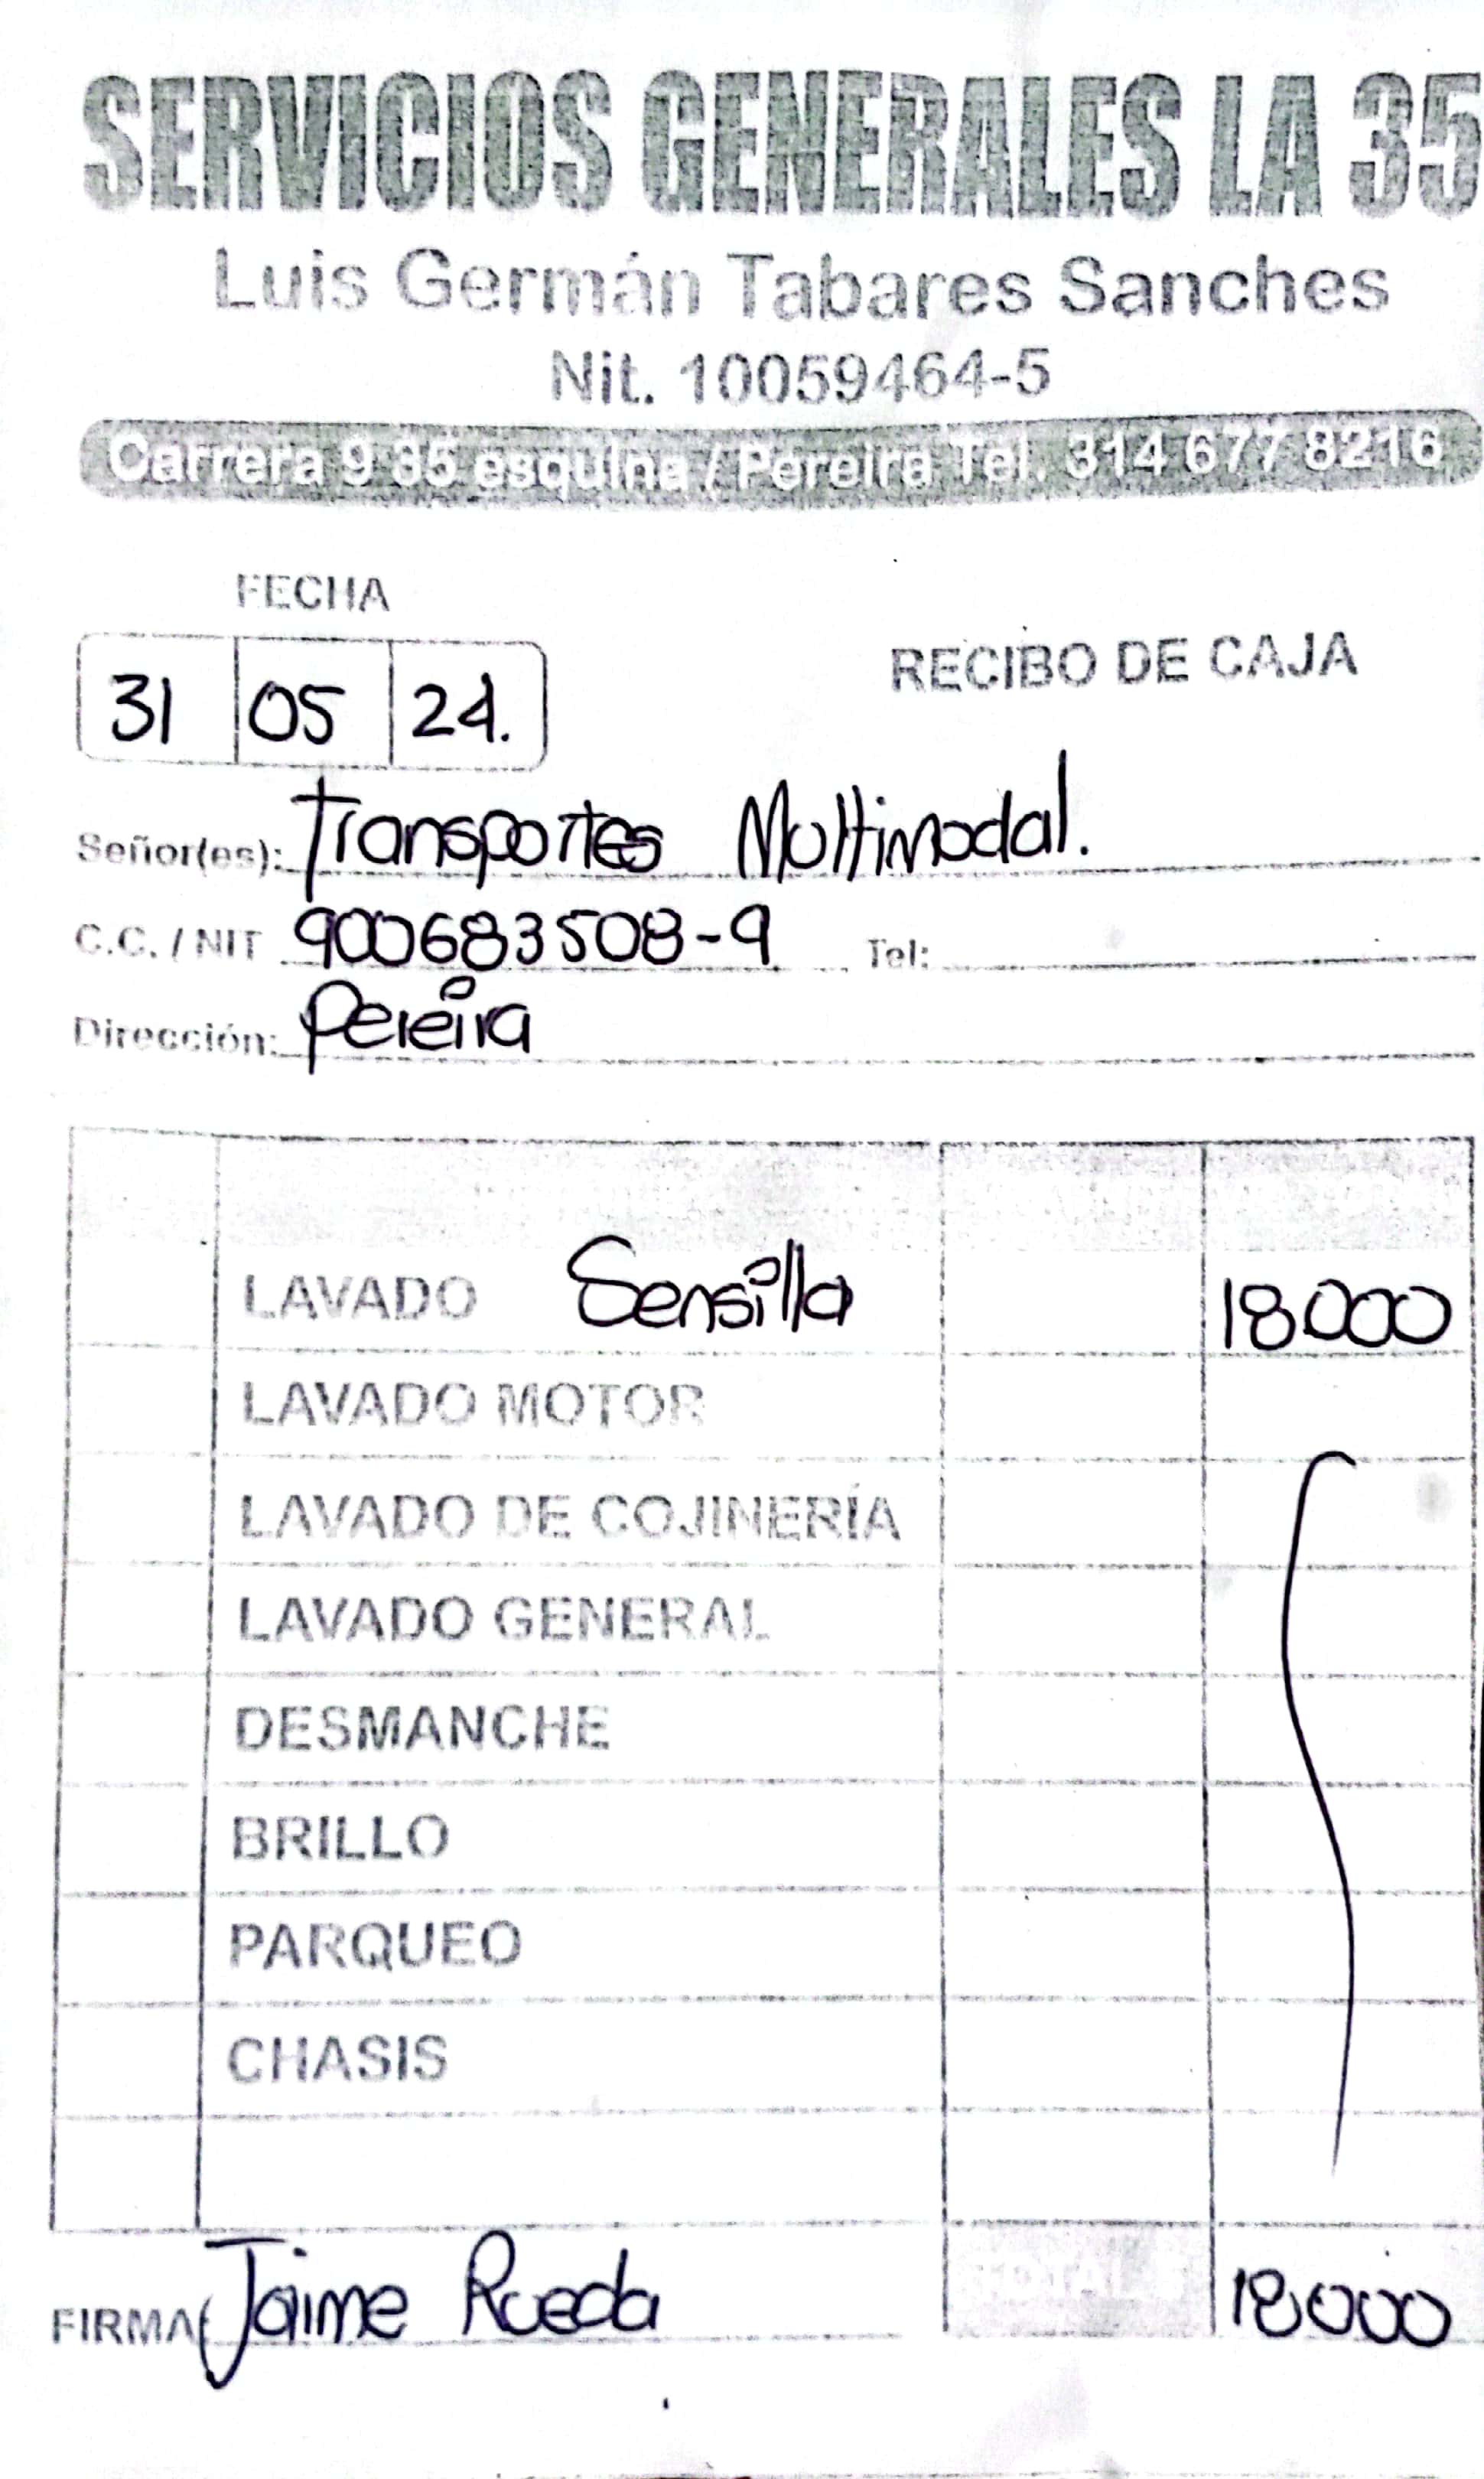 SERVICIOS GENERALES LA 35
Luis Germán Tabares Sanches
Nit. 10059464-5
Carrera 9 35 esquina / Pereira Tel. 314 677 8216
FECHA
31 05 24.
RECIBO DE CAJA
Señor(es): Transportes Multimodal.
C.C. / NIT 900683508-9 Tel:
Dirección: Pereira
LAVADO Sensilla 18000
LAVADO MOTOR
LAVADO DE COJINERÍA
LAVADO GENERAL
DESMANCHE
BRILLO
PARQUEO
CHASIS
FIRMA Jaime Rueda 18000